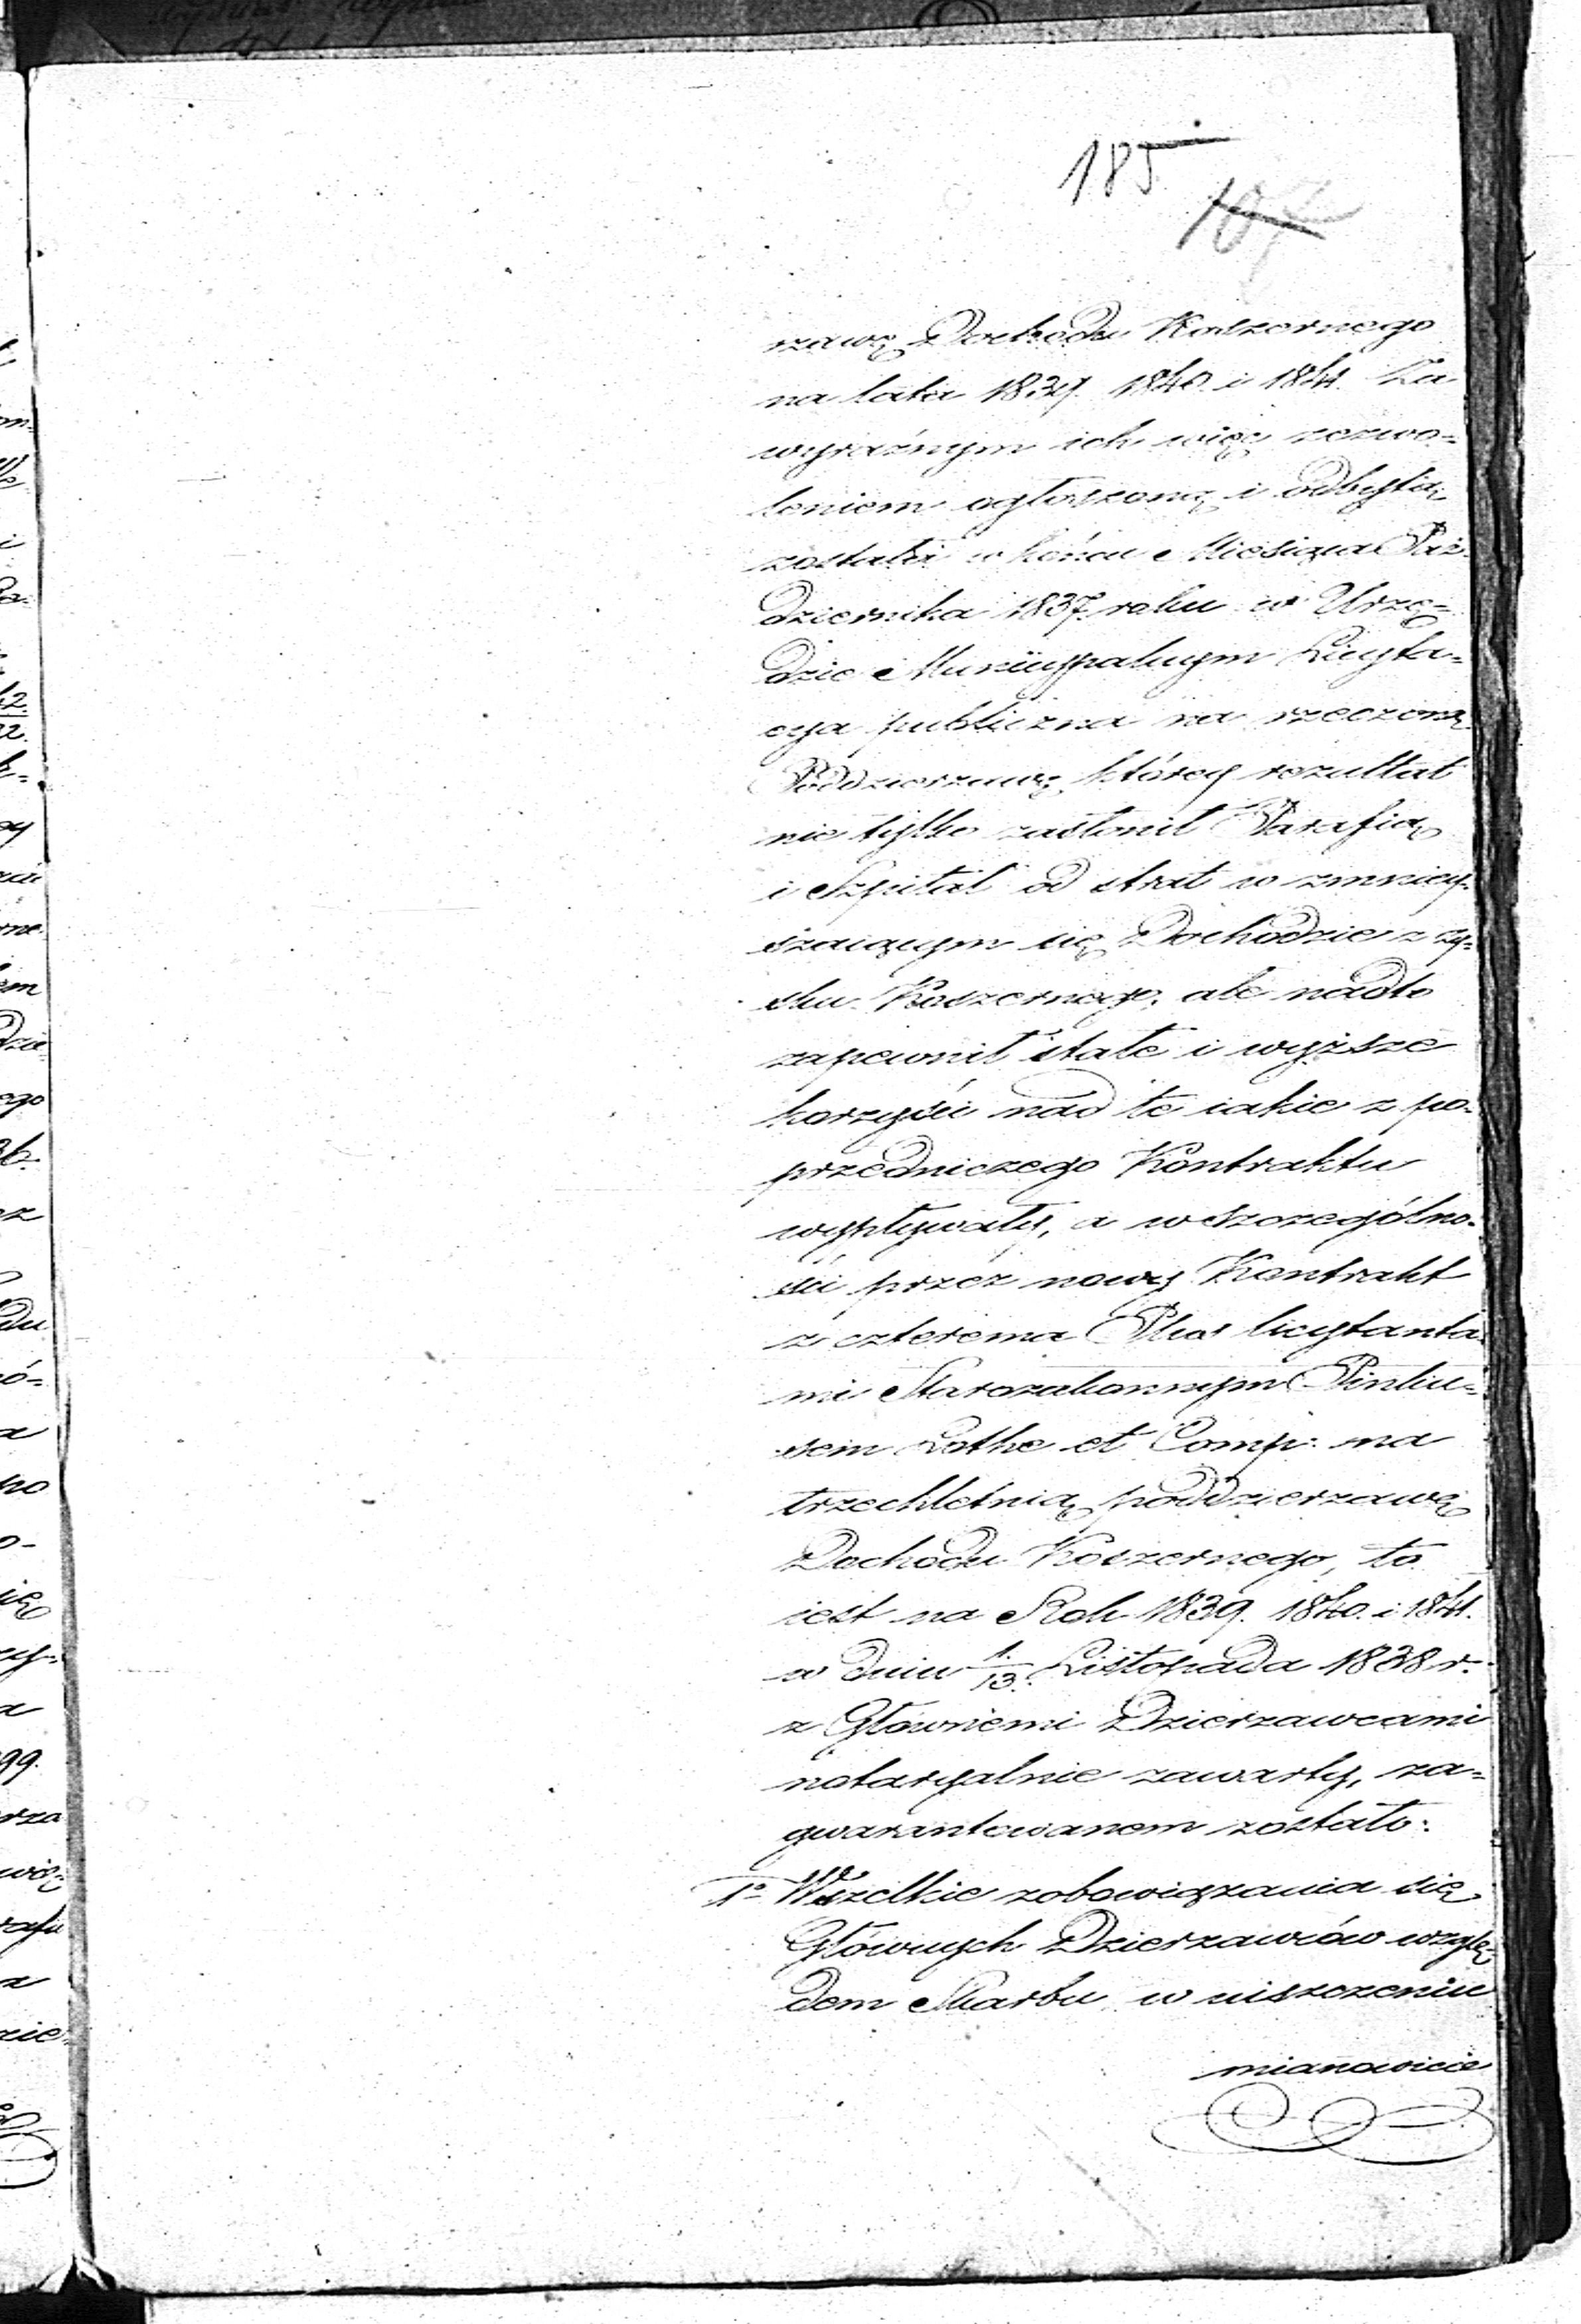 185
107
rzawę Dochodu Koszernego
na lata 1839. 1840. i 1841. Za
wyraźnym ich więc zezwo=
leniem ogłoszoną i odbytą
została w końcu Miesiąca Paź-
dziernika 1837 roku w Urzę=
dzie Municypalnym Licyta=
cya publiczna na rzeczoną
Poddzierzawę, którey rezultat
nie tylko zasłonił Parafią
i Szpital od strat w zmniey-
szaiącym się Dochodzie z zy=
sku Koszernego, ale nadto
zapewnił stałe i wyższe
korzyści nad te iakie z po-
przedniczego Kontraktu
wypływały, a w szczególno-
ści przez nowy Kontrakt
z czterema Plus licytanta-
mi Starozakonnym Pinku=
sem Lothe et Comp: na
trzechletnią poddzierzawę
Dochodu Koszernego, to
iest na Rok 1839. 1840. i 1841.
w dniu 1./13. Listopada 1838 r.
z Głównemi Dzierzawcami
notaryalnie zawarty, za=
gwarantowanem zostało:
1° Wszelkie zobowiązania się
Głównych Dzierzawców wzglę=
dem Skarbu, w uiszczeniu
mianowicie